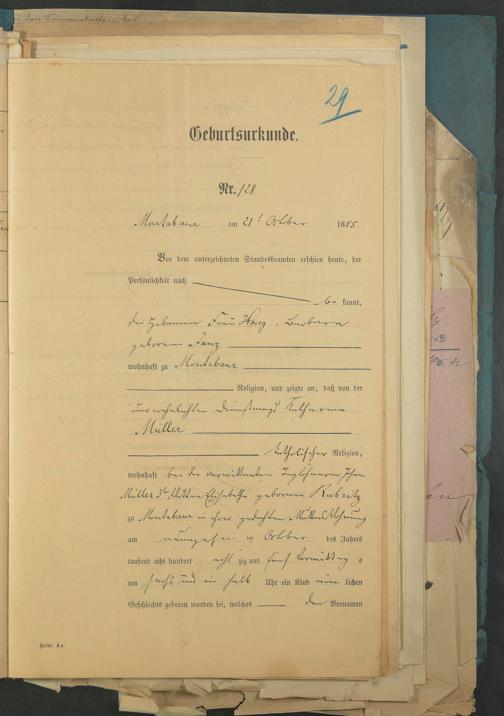 29
Geburtsurkunde.
Nr. 128
Montabaur am 21t October 1885
Vor dem unterzeichneten Standesbeamten erschien heute, der
Persönlichkeit nach
be kannt,
die Hebamme Frau Haug, Barbara
geborene
wohnhaft zu Montabaur
Religion, und zeigte an, daß von der
unverehelichten Dienstmagd Katharina
Müller
katholischer Religion,
wohnhaft bei der verwittweten Taglöhnerin
Müller Elisabetha geborenen
zu Montabaur in ihrer gedachten Mutter Wohnung
am neunzehn ten October des Jahres
tausend acht hundert acht zig und fünf Vormittag s
um sechs und ein halb Uhr ein Kind männ lichen
Geschlechts geboren worden sei, welches den Vornamen
Form. Aa.